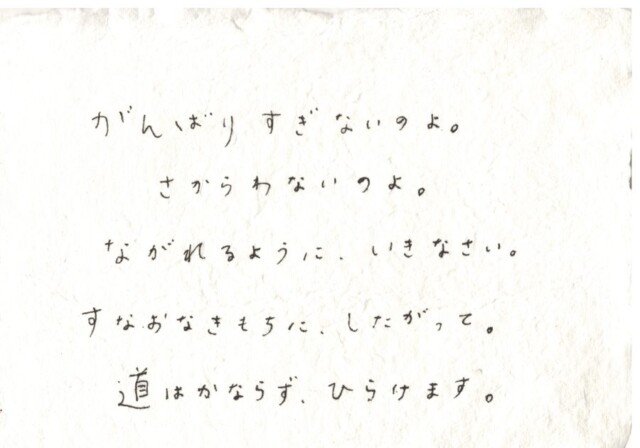 がんばりすぎないのよ。
さからわないのよ。
ながれるように、いきなさい。
すなおなきもちに、したがって。
道はかならず、ひらけます。